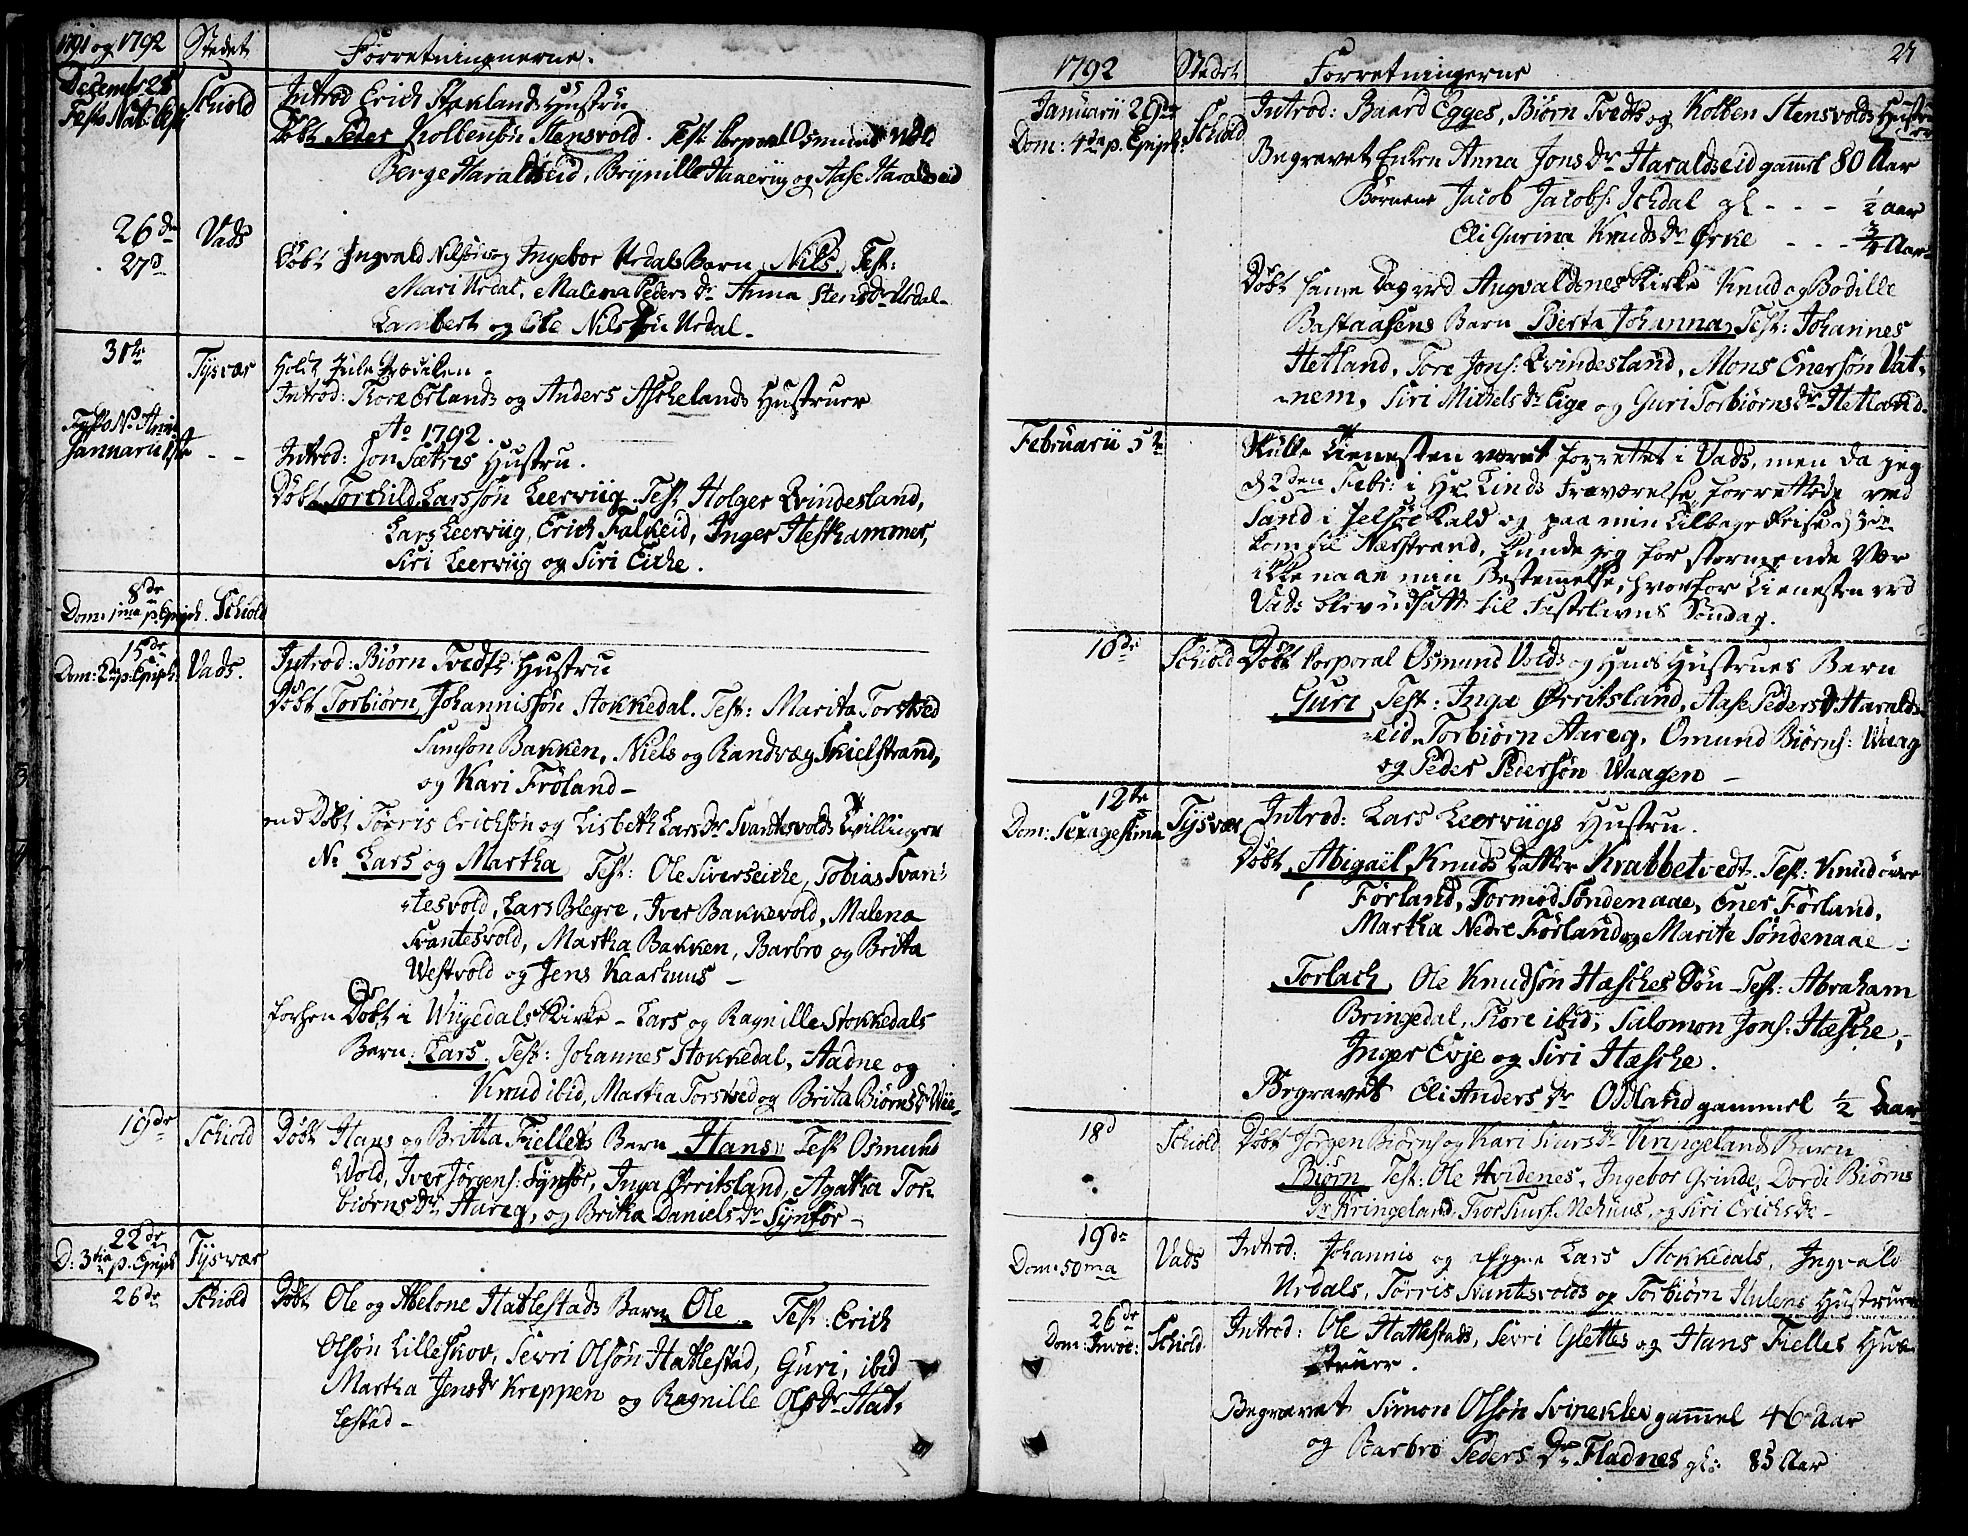 1791 og 1792 Stedet Forretningerne.
Decembr 25 Schiold Introd Erich Stokelands Hustru
Fest: Nat: Døbt Peder Kolbensøn Stensvold. Test: Corporal Osmund
Berge Haraldseid, Brynille og Aase Haraldseid
26de Vads
27d Døbt Ingvald Nilsøn og Ingebor Urdals Barn Nils Test:
Mari Urdal, Malena Peders Dr Anna Stens Dr Urdal
Lambert og Ole Nilssøn Urdal.
31te Tysvær Holdt Jule Prædiken.
Introd: Tore Erlands og Anders Aschelands Hustruer
Ao 1792.
Januarii 1ste - - Introd: Jon Sætres Hustru.
Døbt Torchild Larssøn Leerviig. Test Holger Qvindesland,
Lars Leerviig, Erich Falkeid, Inger Hesthammer,
Siri Leerviig og Siri Eiche.
8de
Dom: 1ma p. Epiph. Schiold
15de Introd: Biørn Tvedts Hustru
Dom: 2da p. Epiph. Vads. Døbt Torbiørn Johannissøn Stokkedal. Test: Marita Torstved
Samson Bakken, Niels og Randvæg Skielstrand,
og Kari Frøland -
Døbt Tørris Erichsøn og Lisbeth Lars Dr Svantesvolds Tvillinger
N: Lars og Martha Test: Ole Siverseiche, Tobias Svan-
tesvold, Lars Blegre, Iver Bakkevold, Malena
Svantesvold, Martha Bakken, Barbro og Britta
Westvold og Jens Kaarhuus -
forhen Døbt i Wiigedals Kirke - Lars og Ragnille Stokkedals
Barn: Lars. Test: Johannes Stokkedal, Aadne og
Knud ibid, Martha Torstved og Brita Biørns Dr
19de Schiold Døbt Hans og Britta Fiellets Barn Hans. Test Osmund
Wold, Iver Jørgens: Synfør, Inga Ørritsland, Agatha Tor-
biørns Dr Aareg, og Britha Daniels Dr Synfør -
22de
D: 3tia p. Epiph Tysvær
26de Schiold Døbt Ole og Abelone Hatlestads Barn Ole. Test: Erich
Olsøn Lilleskov, Sevri Olsøn Hatlestad, Guri, ibid
Martha Jens Dr Kreppen og Ragnille Ols Dr Hat-
lestad -
1792 Stedet Forretningerne 27
Januarii 29de Schiold Introd: Baard Egges, Biørn Tvedts og Kolben Stensvolds Hustruer
Dom: 4ta p. Epiph: Begravet Enken Anna Jons Dr Haraldseid gammel 80 Aar
Børnene Jacob Jacobs: Ischdal gl - - - 1/2 aar
Eli Gurina Knuds Dr Ørke - - - 3/4 Aar
Døbt samme Dag ved Augvaldsnes Kirke Knud og Bodille
Bastaasens Barn Berta Johanna, Test: Johannes
Hetland, Tore Jons: Qvindesland, Mons Enersøn Vat-
nem, Siri Michels Dr Eige og Guri Torbiørns Dr Hetland.
Februarii 5te Skulle Tienesten været forrettet i Vads, men da jeg
d 2den Febr: i Hr Linds Fraværelse, forrettede ved
Sand i Jelsøe Kald og paa min Tilbage Reise d 3die
kom til Nærstrand, kunde jeg for stormende Veir
ikke naae min Bestemmelse, hvorfor Tienesten ved
Vads blev udsatt til Fastelavns Søndag.
10de Schiold Døbt Corporal Osmund Volds og Hustrues Barn
Guri Test: Inga Ørritsland, Aase Peders Dr Haralds-
eid, Torbiørn Aareg, Omund Biørns: Waag
og Peder Pedersøn Waagen -
12te
Dom: Sexagesima Tysvær Introd: Lars Leerviigs Hustru.
Døbt, Abigaël Knuds Datter Krabbetvedt. Test: Knud øvre
Førland, Tormod Søndenaae, Ener Førland,
Martha Nedre Førland og Marite Søndenaae -
Torlach Ole Knudsøn Hæsches Søn - Test: Abraham
Bringedal, Tore ibid, Salomon Jons: Hæsche,
Inger Evje og Siri Hæsche.
Begravet Eli Anders Dr Odland gammel 1/2 Aar
18d Schiold Døbt Jørgen Biørns: og Kari Siurs Dr Kringelands Barn
Biørn Test: Ole Hvidenes, Ingebor Grinde, Dordi Biørns
Dr Kringeland, Tor Siurs: Nehuus, og Siri Erichs Dr -
19de
Dom: 50ma Vads Introd: Johannis og Lars Stokkedals, Ingvald
Urdals, Tørris Svantesvolds og Torbiørn Hulens Hustruer
26de
Dom: Invoc: Schiold. Introd: Ole Hatlestads, Sevri Slettes og Hans Fielles Hu-
struer.
Begravet Simon Olsøn Svinekles gammel 46 Aar
og Barbro Peders Dr Fladnes gl: 83 Aar